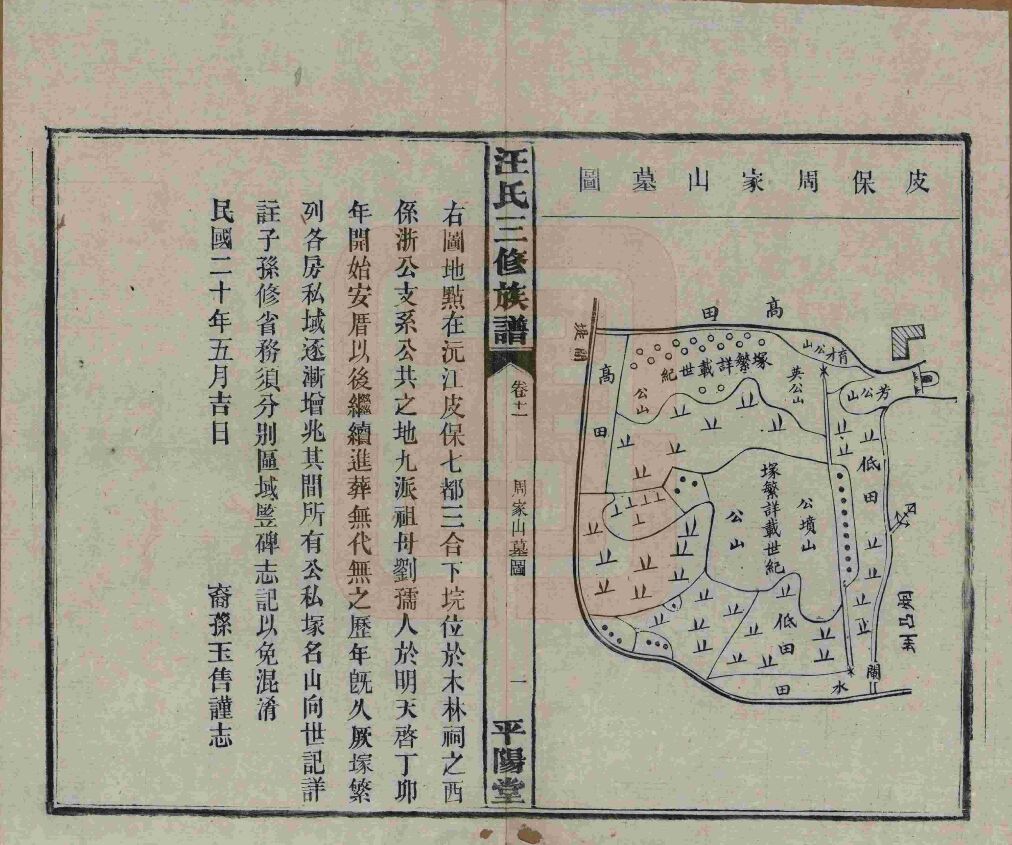 皮保周家山墓圖
高田
閘堤
高田
塚繁詳載世紀
公山
英公山
育才公山
芳公山
低田
塚繁詳載世紀
公墳山
公山
低田
水田
閘
汪氏三修族譜
卷十一
周家山墓圖
一
平陽堂
右圖地點在沅江皮保七都三合下垸位於木林祠之西
係浙公支系公共之地九派祖母劉孺人於明天啓丁卯
年開始安厝以後繼續進葬無代無之歷年旣久厥塚繁
列各房私域逐漸增兆其間所有公私塚名山向世記詳
註子孫修省務須分別區域竪碑志記以免混淆
民國二十年五月吉日
裔孫玉售謹志